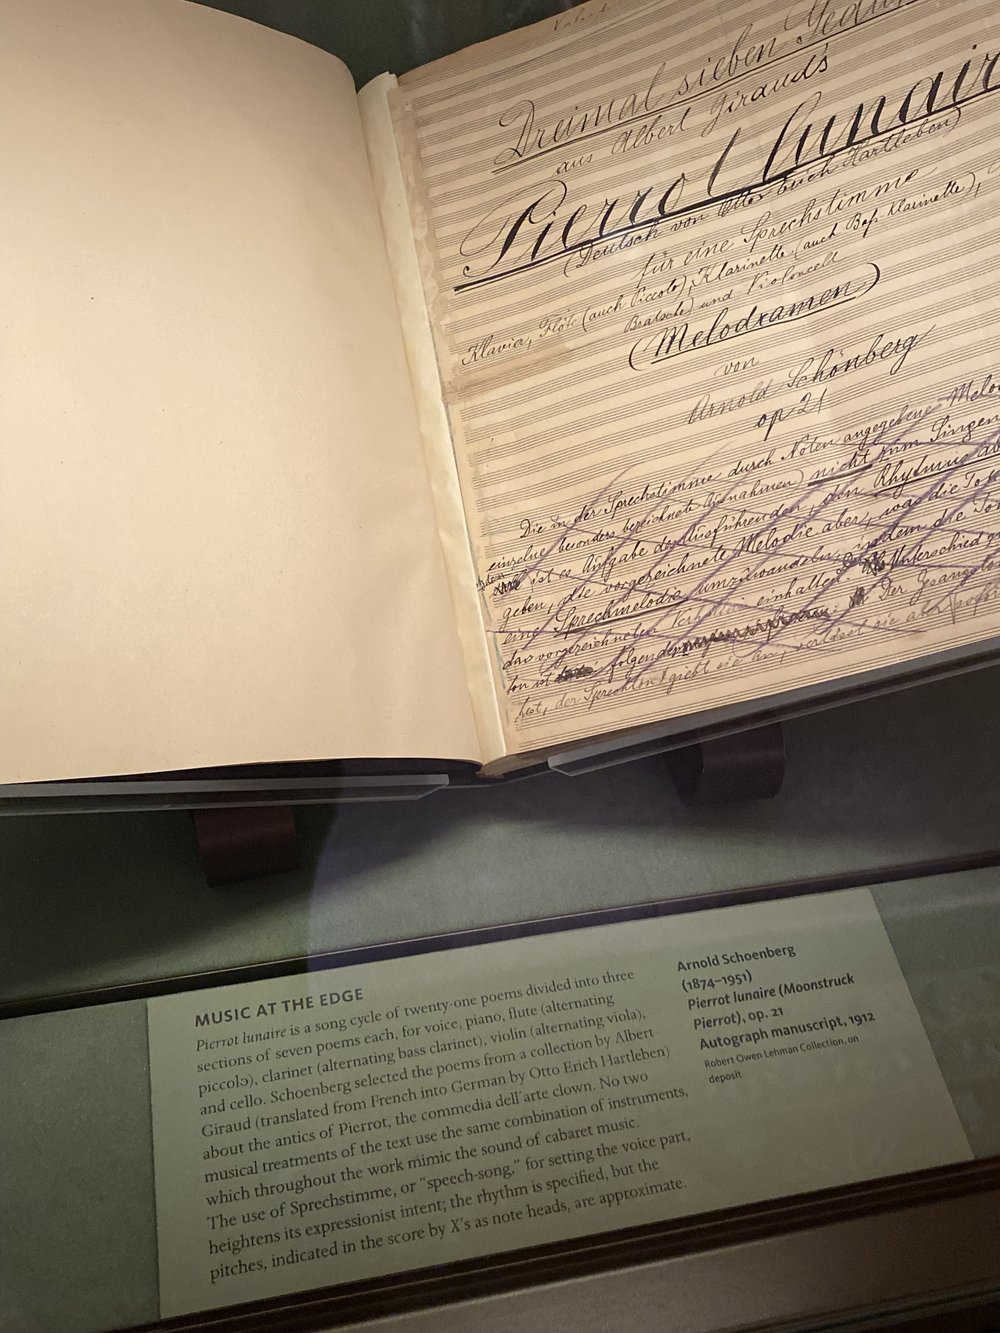 Dreimal sieben
aus Albert Giraud's
Pierrot lunaire
(Deutsch von Otto Erich Hartleben)
für eine Sprechstimme
Klavier, Flöte (auch Piccolo), Klarinette (auch Baß Klarinette),
Bratsche) und Violoncell
(Melodramen)
von
Arnold Schönberg
op 21
Die in der Sprechstimme durch Noten angegebene
einzelne besonders bezeichnete Ausnahmen) nicht zum Singen
ist es Aufgabe des Ausführenden, den Rhythmus
geben, die vorgezeichnete Melodie aber, was die
eine Sprechmelodie umzuwandeln, indem die
das vorgezeichneten einhalten. Unterschied
ton ist folgender Der
fest, der Sprechton giebt sie an, verlässt sie aber
MUSIC AT THE EDGE
Pierrot lunaire is a song cycle of twenty-one poems divided into three
sections of seven poems each, for voice, piano, flute (alternating
piccolo), clarinet (alternating bass clarinet), violin (alternating viola),
and cello. Schoenberg selected the poems from a collection by Albert
Giraud (translated from French into German by Otto Erich Hartleben)
about the antics of Pierrot, the commedia dell'arte clown. No two
musical treatments of the text use the same combination of instruments,
which throughout the work mimic the sound of cabaret music.
The use of Sprechstimme, or "speech-song," for setting the voice part,
heightens its expressionist intent; the rhythm is specified, but the
pitches, indicated in the score by X's as note heads, are approximate.
Arnold Schoenberg
(1874–1951)
Pierrot lunaire (Moonstruck
Pierrot), op. 21
Autograph manuscript, 1912
Robert Owen Lehman Collection, on
deposit